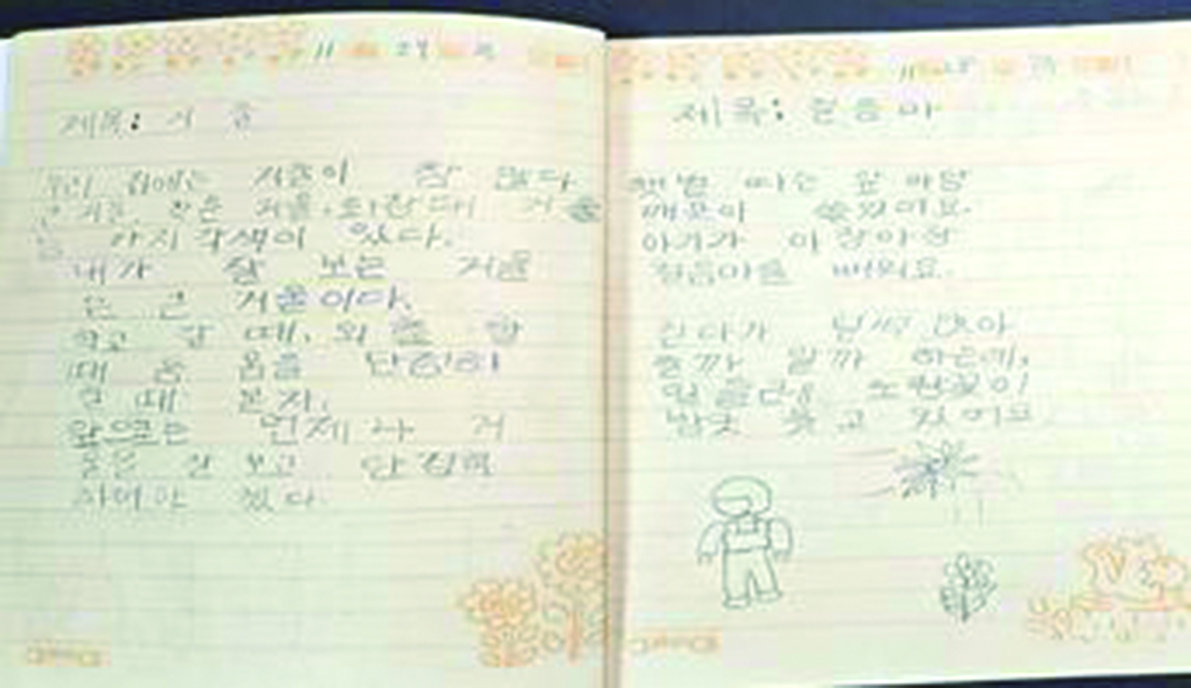 11 29
제목: 거울
우리 집에는 거울이 참 많다
거울, 작은 거울, 화장대 거울
가지각색이 있다.
내가 잘 보는 거울
은 큰 거울이다.
학교 갈 때, 외출 할
때 옷을 단정히
할 때 본다.
앞으로는 언제나 거
울을 잘 보고 단정히
하여야 겠다.
11 28
제목: 걸음마
햇볕 따스한 앞 마당
아기가 아장아장
걸음마를 배워요.
간다가 넘어
줄까 말까 하는데,
노란꽃이
방긋 웃고 있어요